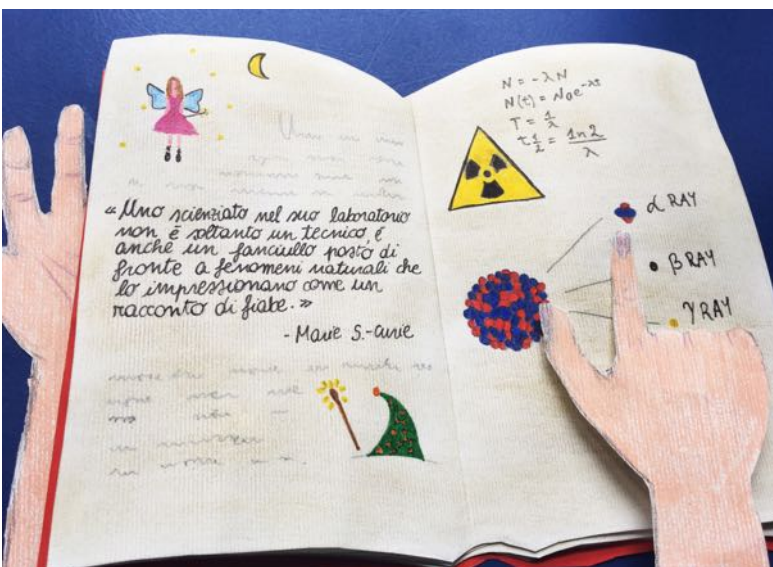 «Uno scienziato nel suo laboratorio
non è soltanto un tecnico, è
anche un fanciullo posto di
fronte a fenomeni naturali che
lo impressionano come un
racconto di fiabe.»
- Marie S.-Curie
N = -λN
N(t) = N0e^-λt
T = 1/λ
t 1/2 = ln2/λ
α RAY
β RAY
γ RAY